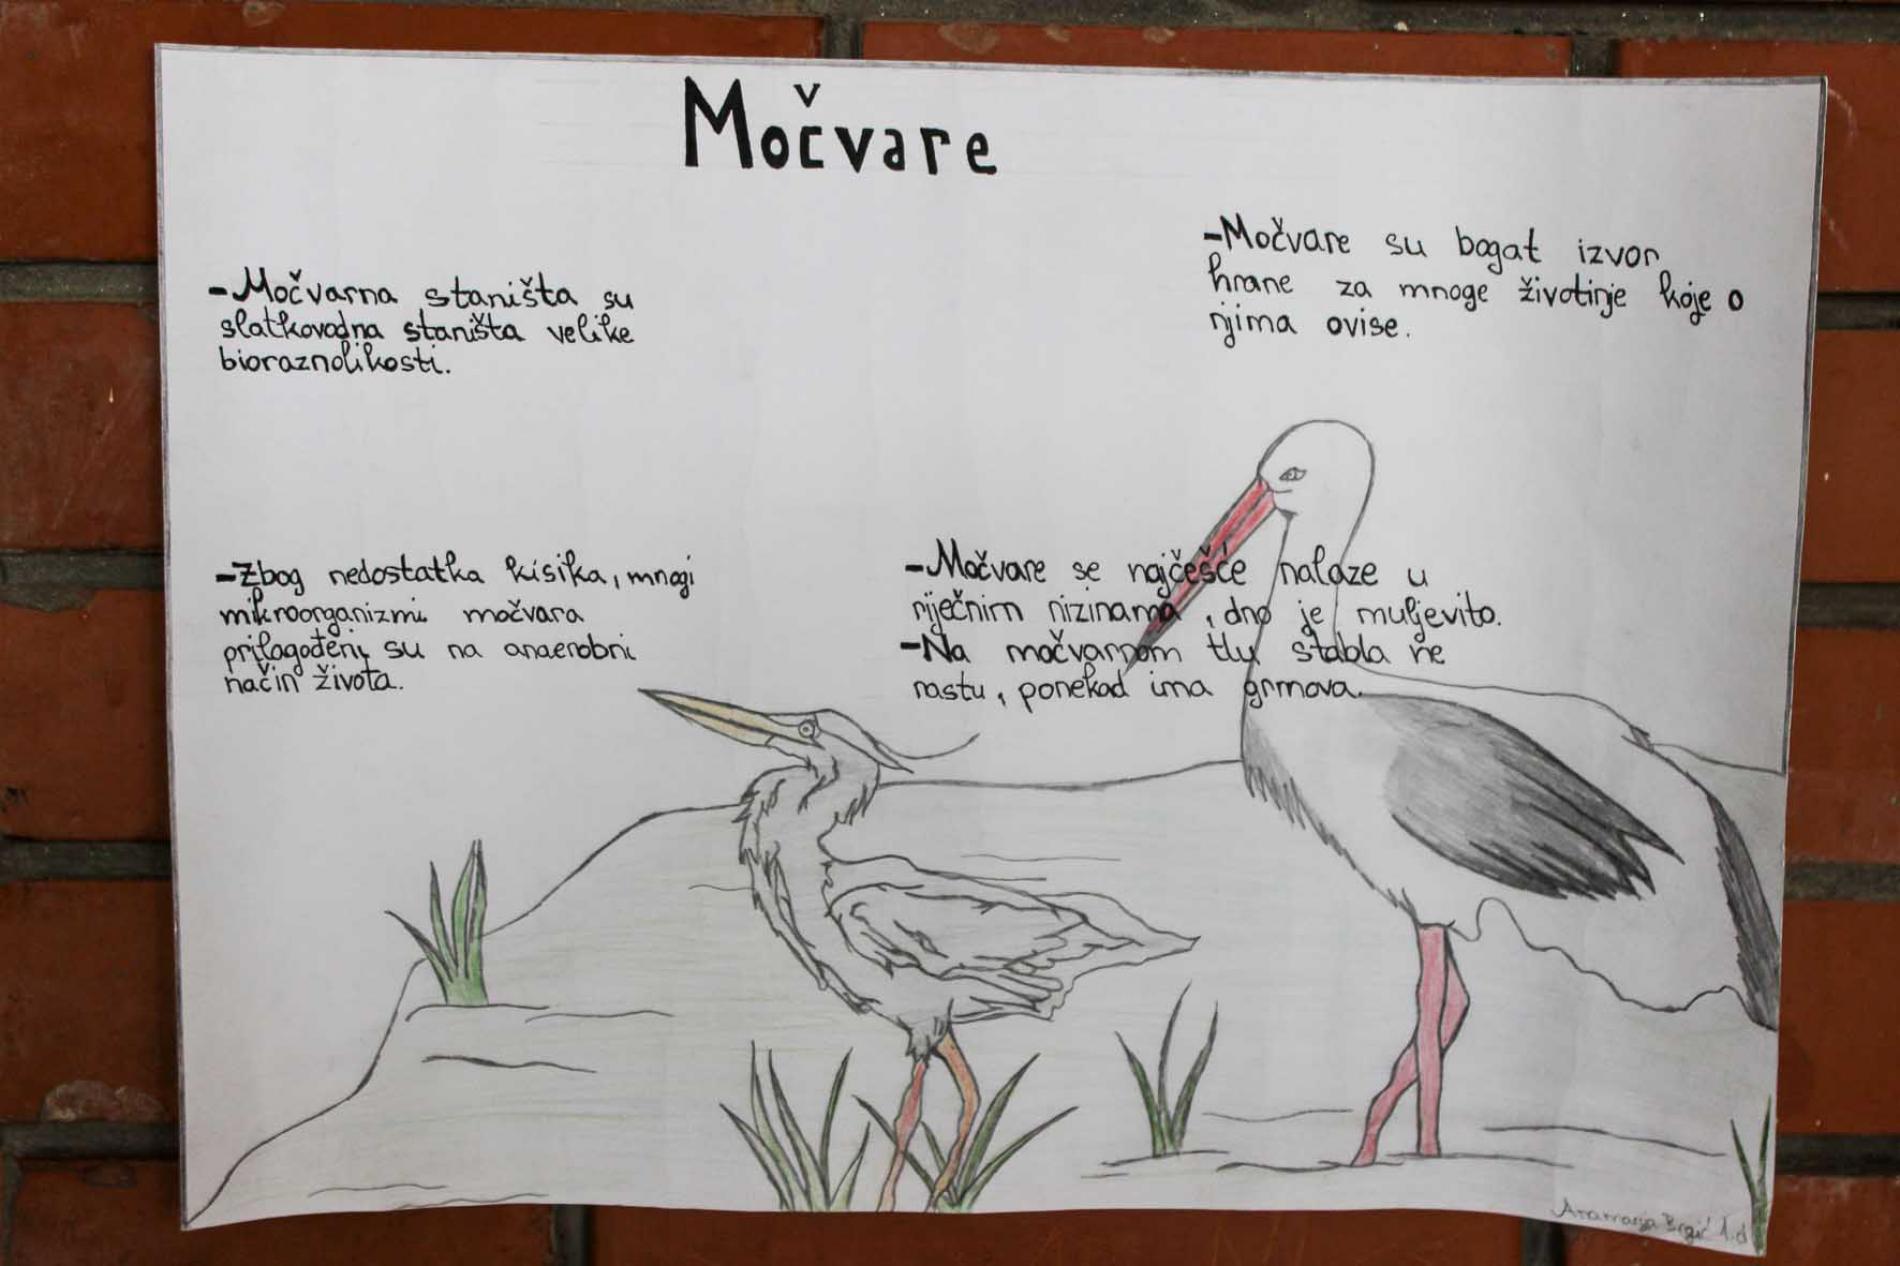 Močvare
-Močvarna staništa su
slatkovodna staništa velike
bioraznolikosti.
-Močvare su bogat izvor
hrane za mnoge životinje koje o
njima ovise.
-Zbog nedostatka kisika, mnogi
mikroorganizmi močvara
prilagođeni su na anaerobni
način života.
-Močvare se najčešće nalaze u
riječnim nizinama, dno je muljevito.
-Na močvarnom tlu stabla ne
rastu, ponekad ima grmova.
Anamarija Brgić 1.d